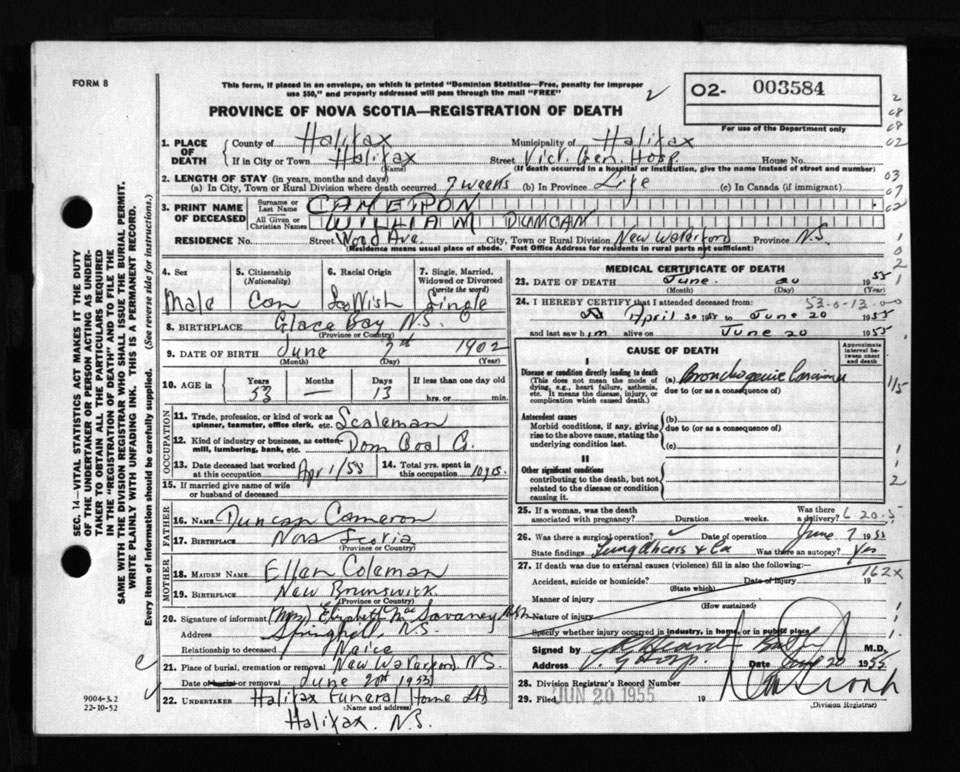 FORM 8
This form, if placed in an envelope, on which is printed "Dominion Statistics—Free, penalty for improper
use $50," and properly addressed will pass through the mail "FREE"
O2- 003584
PROVINCE OF NOVA SCOTIA—REGISTRATION OF DEATH
For use of the Department only
1. PLACE OF DEATH County of Halifax Municipality of Halifax
If in City or Town Halifax Street Vict. Gen. Hosp. House No.
(Name) (If death occurred in a hospital or institution, give the name instead of street and number)
2. LENGTH OF STAY (in years, months and days)
(a) In City, Town or Rural Division where death occurred 7 weeks (b) In Province Life (c) In Canada (if immigrant)
3. PRINT NAME OF DECEASED Surname or Last Name CAMERON
All Given or Christian Names WILLIAM DUNCAN
RESIDENCE No. Street Wood Ave. City, Town or Rural Division New Waterford Province N.S.
(Residence means usual place of abode. Post Office Address for residents in rural parts not sufficient)
4. Sex 5. Citizenship (Nationality) 6. Racial Origin 7. Single, Married, Widowed or Divorced (write the word)
Male Can Single
8. BIRTHPLACE Glace Bay N.S.
(Province or Country)
9. DATE OF BIRTH June 7th 1902
(Month) (Day) (Year)
10. AGE in Years Months Days If less than one day old
53 — 13 hrs. or min.
OCCUPATION
11. Trade, profession, or kind of work as spinner, teamster, office clerk, etc. Scaleman
12. Kind of industry or business, as cotton mill, lumbering, bank, etc. Dom Coal C.
13. Date deceased last worked at this occupation Apr 1/55 14. Total yrs. spent in this occupation 10 yrs.
15. If married give name of wife or husband of deceased
FATHER
16. NAME Duncan Cameron
17. BIRTHPLACE Nova Scotia
(Province or Country)
MOTHER
18. MAIDEN NAME Ellen Coleman
19. BIRTHPLACE New Brunswick
(Province or Country)
20. Signature of informant (Mrs) Elizabeth
Address Springhill, N.S.
Relationship to deceased Neice
21. Place of burial, cremation or removal New Waterford N.S.
Date of burial or removal June 20th 1955
22. UNDERTAKER Halifax Funeral Home Ltd
(Name and address)
Halifax. N.S.
9004-3.2
22-10-52
MEDICAL CERTIFICATE OF DEATH
23. DATE OF DEATH June 20 1955
(Month) (Day) (Year)
24. I HEREBY CERTIFY that I attended deceased from
53-0-13-00
April 30 1955 to June 20 1955
and last saw him alive on June 20 1955
CAUSE OF DEATH
Approximate interval between onset and death
I
Disease or condition directly leading to death
(This does not mean the mode of dying, e.g., heart failure, asthenia, etc. It means the disease, injury, or complication which caused death.)
(a) Bronchogenic Carcinoma
due to (or as a consequence of)
Antecedent causes
Morbid conditions, if any, giving rise to the above cause, stating the underlying condition last.
(b)
due to (or as a consequence of)
(c)
II
Other significant conditions
contributing to the death, but not related to the disease or condition causing it.
25. If a woman, was the death associated with pregnancy? Duration weeks. Was there a delivery?
26. Was there a surgical operation? Date of operation June 7 1955
State findings Was there an autopsy? Yes
27. If death was due to external causes (violence) fill in also the following:—
162X
Accident, suicide or homicide? Date of injury 19
(State which)
Manner of injury
(How sustained)
Nature of injury
Specify whether injury occurred in industry, in home, or in public place
Signed by M.D.
Address V. G. Hosp. Date June 20 1955
28. Division Registrar's Record Number
29. Filed JUN 20 1955 19
(Division Registrar)
SEC. 14—VITAL STATISTICS ACT MAKES IT THE DUTY
OF THE UNDERTAKER OR PERSON ACTING AS UNDER-
TAKER TO OBTAIN ALL THE PARTICULARS REQUIRED
IN THE "REGISTRATION OF DEATH" AND TO FILE THE
SAME WITH THE DIVISION REGISTRAR WHO SHALL ISSUE THE BURIAL PERMIT.
WRITE PLAINLY WITH UNFADING INK. THIS IS A PERMANENT RECORD.
Every item of information should be carefully supplied. (See reverse side for instructions.)